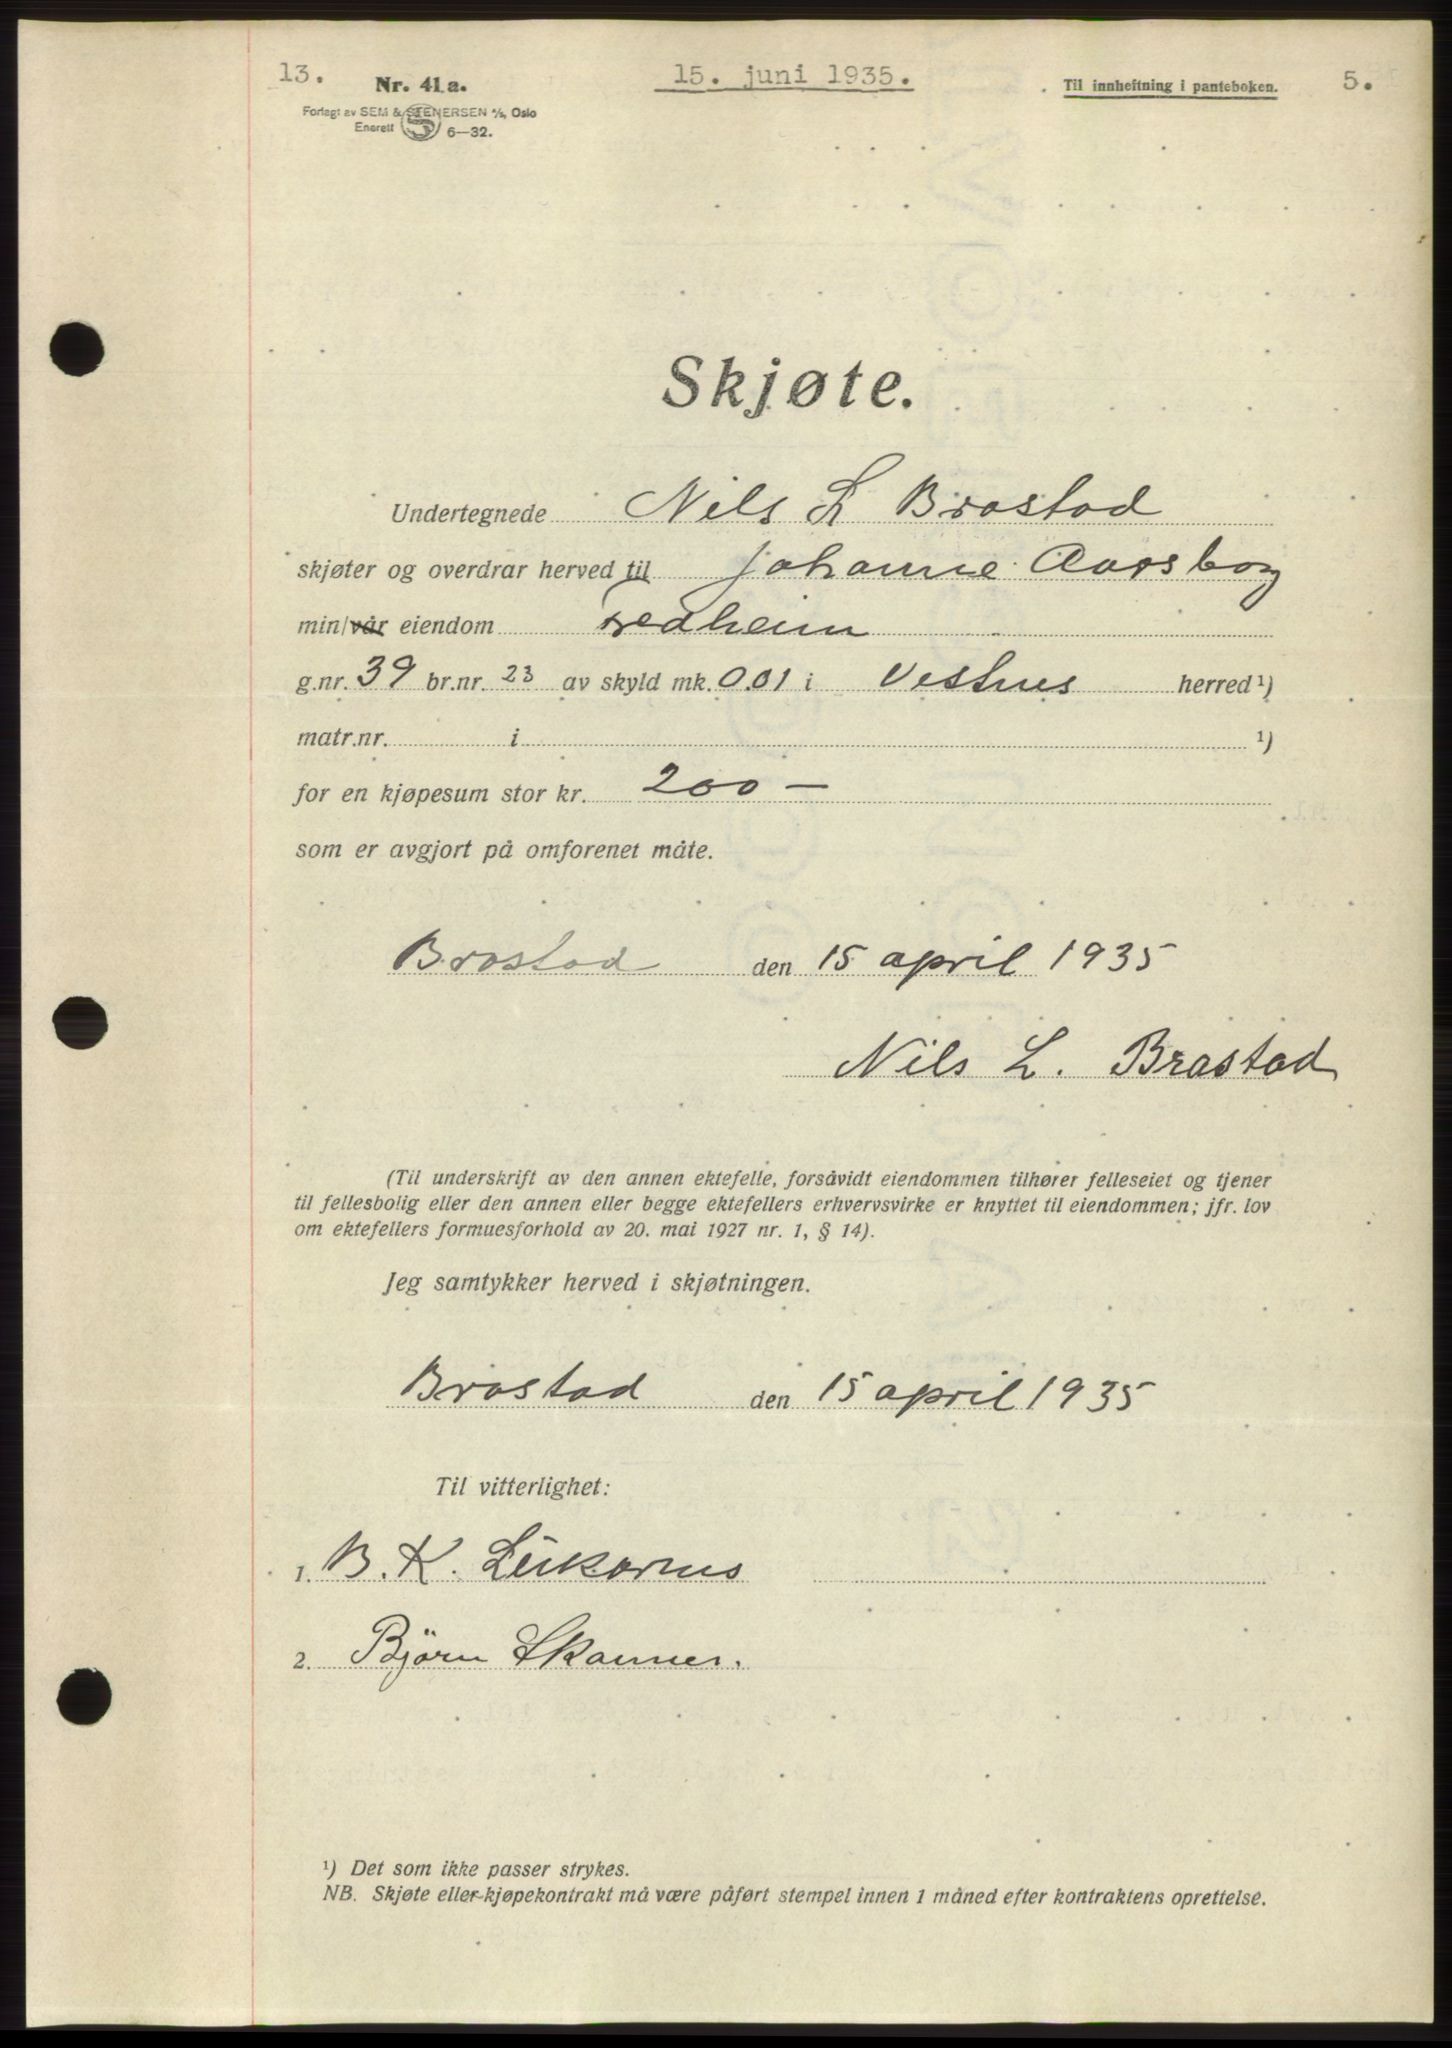 13.
Nr. 41 a.
Forlagt av SEM & STENERSEN A/S, Oslo
Enerett S 6—32.
15. juni 1935.
Til innheftning i panteboken.
5.
Skjøte.
Undertegnede Nils L Brastad
skjøter og overdrar herved til Johanne Aarsbog
min/vår eiendom Fredheim
g.nr. 39 br.nr. 23 av skyld mk. 0.01 i Vestnes herred ¹)
matr.nr. i ¹)
for en kjøpesum stor kr. 200 —
som er avgjort på omforenet måte.
Brastad den 15 april 1935
Nils L. Brastad
(Til underskrift av den annen ektefelle, forsåvidt eiendommen tilhører felleseiet og tjener
til fellesbolig eller den annen eller begge ektefellers erhvervsvirke er knyttet til eiendommen; jfr. lov
om ektefellers formuesforhold av 20. mai 1927 nr. 1, § 14).
Jeg samtykker herved i skjøtningen.
Brastad den 15 april 1935
Til vitterlighet:
1. B. K.
2. Björn
¹) Det som ikke passer strykes.
NB. Skjøte eller kjøpekontrakt må være påført stempel innen 1 måned efter kontraktens oprettelse.